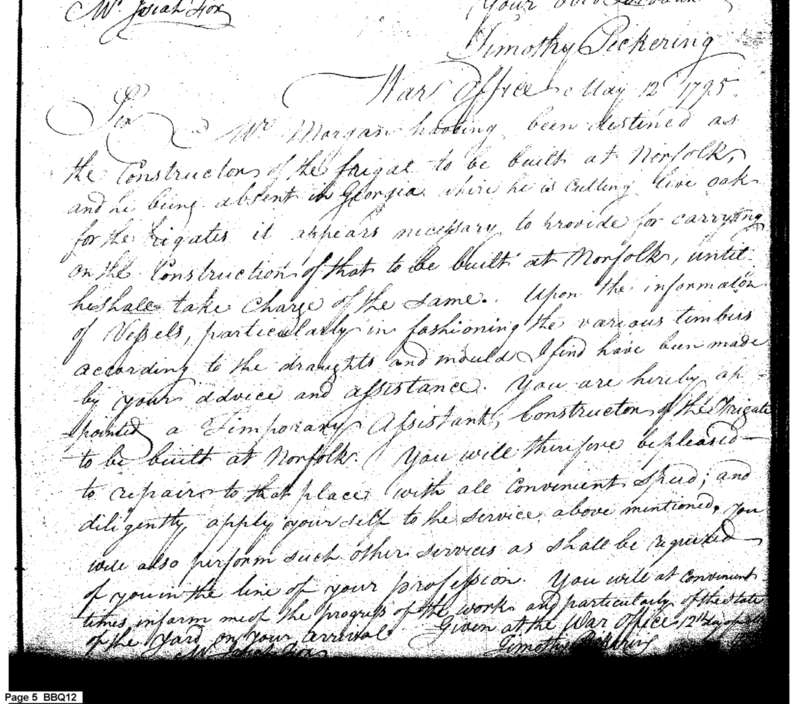 Mr Josiah Fox
Your
Timothy Pickering
War Office May 12 1795.
Sir
Mr Morgan having been destined as
the Constructor of the frigat to be built at Norfolk,
and he being absent in Georgia where he is cutting live oak
for the frigates it appears necessary to provide for carrying
on the Construction of that to be built at Norfolk, until
he shall take Charge of the Same. Upon the information
of Vessels, particularly in fashioning the various timbers
according to the draughts and moulds I find have been made
by your advice and assistance. You are hereby ap-
pointed a Temporary Assistant Constructor of the Frigate
to be built at Norfolk. You will therefore be pleased
to repair to that place with all Convenient Speed; and
diligently apply yourself to the Service above mentioned. You
will also perform such other services as shall be required
of you in the line of your profession. You will at Convenient
times inform me of the progress of the work and particularly of the State
of the Yard on your arrival. Given at the War Office 12th day of
Mr Josiah Fox Timothy Pickering
Page 5 BBQ12